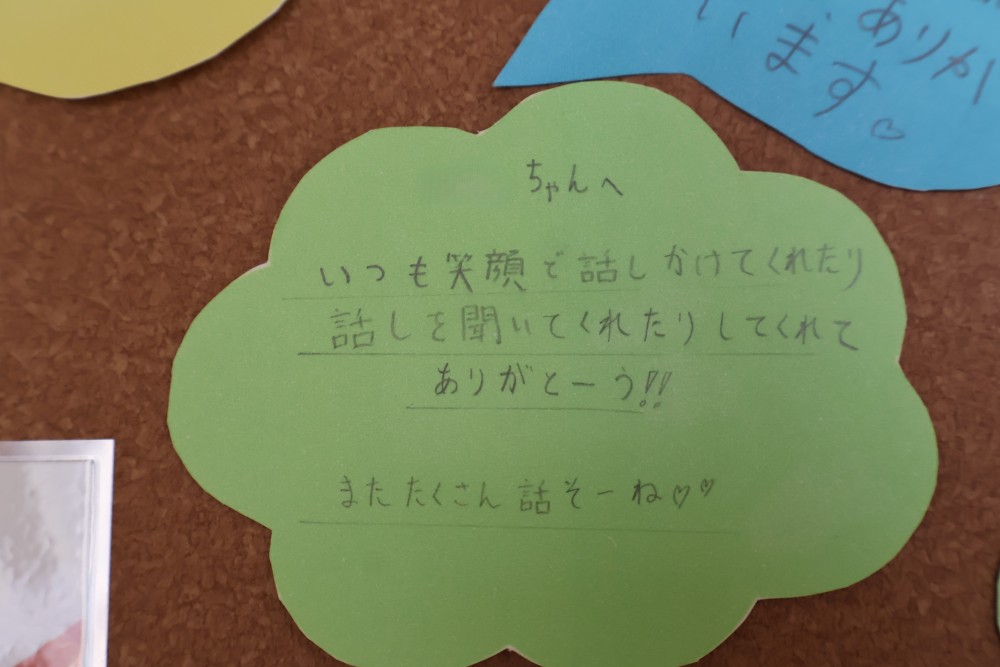 ありが
います♡
ちゃんへ
いつも笑顔で話しかけてくれたり
話しを聞いてくれたりしてくれて
ありがとーう!!
またたくさん話そーね♡♡